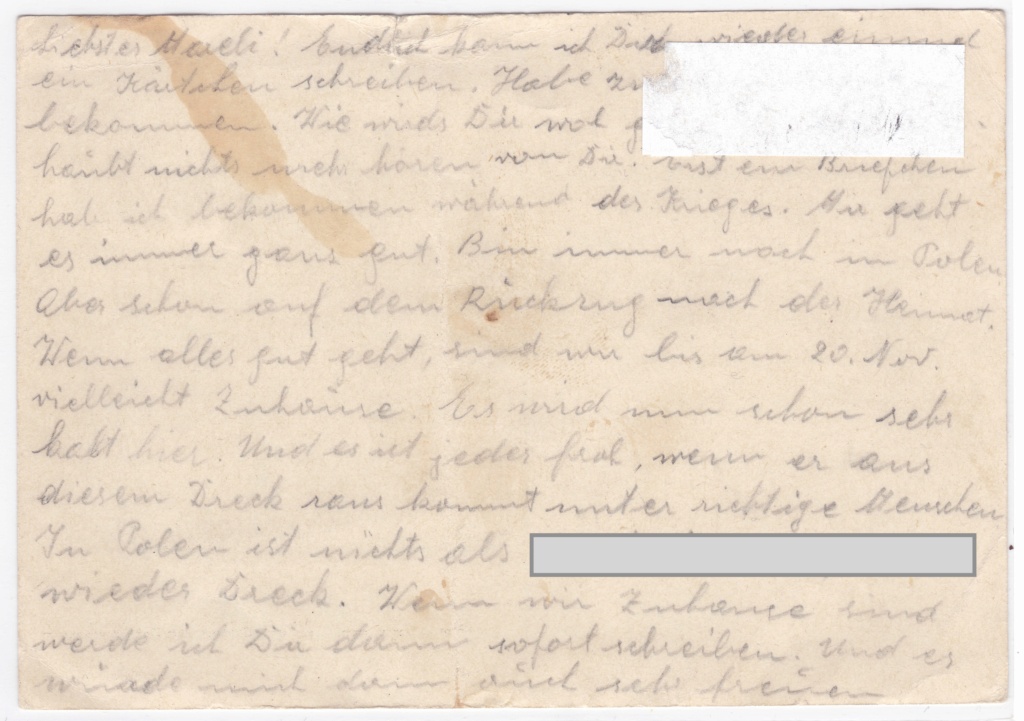 Liebster Mucli! Endlich kann ich Dir wieder einmal
ein Kärtchen schreiben. Habe
bekommen. Wie wirds Dir wol
häubt nichts mehr hören von Dir. ein Briefchen
hab ich bekommen während des Krieges. Mir geht
es immer ganz gut. Bin immer noch in Polen
Aber schon auf dem Rückzug nach der Heimat.
Wenn alles gut geht, sind wir bis am 20. Nov.
vielleicht Zuhause. Es wird nun schon sehr
kalt hier. Und es ist jeder froh, wenn er aus
diesem Dreck raus kommt unter richtige Menschen
In Polen ist nichts als
wieder Dreck. Wenn wir Zuhause sind
werde ich Dir dann sofort schreiben. Und es
würde mich dann auch sehr freuen